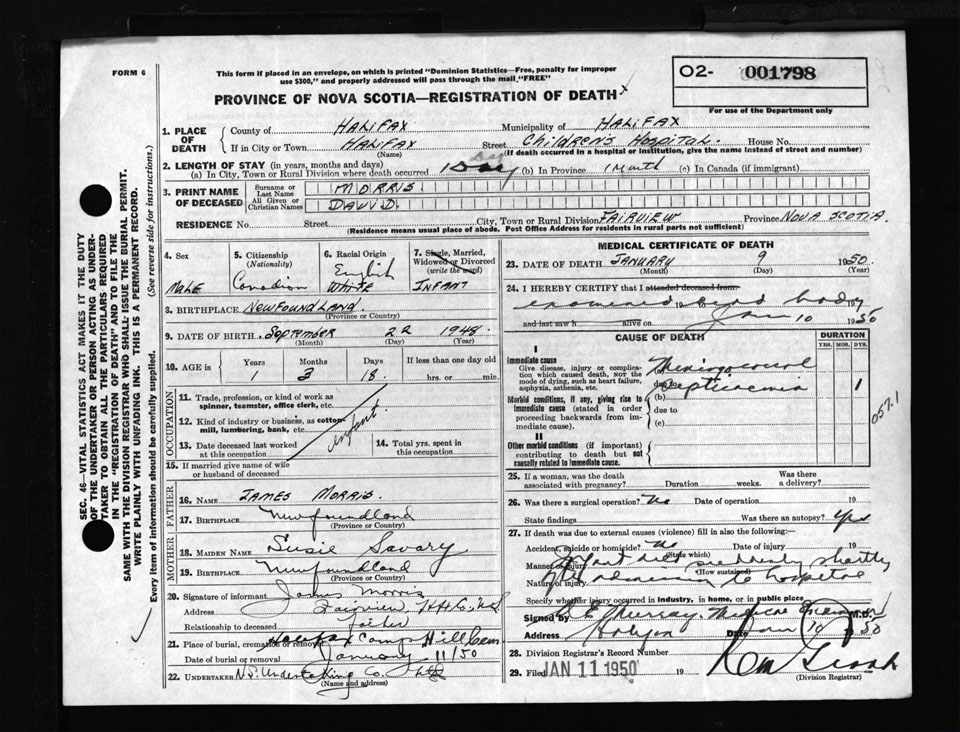 FORM 6
This form if placed in an envelope, on which is printed "Dominion Statistics—Free, penalty for improper
use $300," and properly addressed will pass through the mail "FREE"
O2- 001798
PROVINCE OF NOVA SCOTIA—REGISTRATION OF DEATH
For use of the Department only
1. PLACE OF DEATH
County of HALIFAX Municipality of HALIFAX
If in City or Town HALIFAX Street Children's Hospital House No.
(Name) (If death occurred in a hospital or institution, give the name instead of street and number)
2. LENGTH OF STAY (in years, months and days)
(a) In City, Town or Rural Division where death occurred 1 Day (b) In Province 1 Month (c) In Canada (if immigrant)
3. PRINT NAME OF DECEASED
Surname or Last Name MORRIS
All Given or Christian Names DAVID
RESIDENCE No. Street City, Town or Rural Division FAIRVIEW Province NOVA SCOTIA
(Residence means usual place of abode. Post Office Address for residents in rural parts not sufficient)
4. Sex
MALE
5. Citizenship
(Nationality)
Canadian
6. Racial Origin
English
WHITE
7. Single, Married,
Widowed or Divorced
(write the word)
INFANT
8. BIRTHPLACE NEWFOUNDLAND
(Province or Country)
9. DATE OF BIRTH September 22 1948
(Month) (Day) (Year)
10. AGE in Years Months Days If less than one day old
1 3 18 hrs. or min.
OCCUPATION
11. Trade, profession, or kind of work as
spinner, teamster, office clerk, etc.
12. Kind of industry or business, as cotton-
mill, lumbering, bank, etc.
infant
13. Date deceased last worked
at this occupation
14. Total yrs. spent in
this occupation
15. If married give name of wife
or husband of deceased
FATHER
16. NAME JAMES MORRIS
17. BIRTHPLACE Newfoundland
(Province or Country)
MOTHER
18. MAIDEN NAME Susie Savary
19. BIRTHPLACE Newfoundland
(Province or Country)
20. Signature of informant James Morris
Address Fairview, Hfx Co., N.S.
Relationship to deceased Father
21. Place of burial, cremation or removal Halifax Camp Hill Cem
Date of burial or removal January 11/50
22. UNDERTAKER N.S. Undertaking Co. Ltd
(Name and address)
MEDICAL CERTIFICATE OF DEATH
23. DATE OF DEATH JANUARY 9 1950
(Month) (Day) (Year)
24. I HEREBY CERTIFY that I attended deceased from
examined dead body
and last saw h alive on Jan 10 1950
CAUSE OF DEATH
DURATION
YRS. MOS. DYS.
I
Immediate cause
Give disease, injury or complica-
tion which caused death, not the
mode of dying, such as heart failure,
asphyxia, asthenia, etc.
Meningococcal
due to septicaemia 1
Morbid conditions, if any, giving rise to
immediate cause (stated in order
proceeding backwards from im-
mediate cause).
(b)
due to
(c)
057.1
II
Other morbid conditions (if important)
contributing to death but not
causally related to immediate cause.
25. If a woman, was the death
associated with pregnancy? Duration weeks. Was there
a delivery?
26. Was there a surgical operation? No Date of operation 19
State findings Was there an autopsy? Yes
27. If death was due to external causes (violence) fill in also the following:
Accident, suicide or homicide? No Date of injury 19
(State which)
Manner of injury Infant died suddenly shortly
(How sustained)
Nature of injury after admission to hospital
Specify whether injury occurred in industry, in home, or in public place
Signed by Murray Medical Examiner M.D.
Address Halifax Date Jan 10 1950
28. Division Registrar's Record Number
29. Filed JAN 11 1950 19
(Division Registrar)
SEC. 46—VITAL STATISTICS ACT MAKES IT THE DUTY
OF THE UNDERTAKER OR PERSON ACTING AS UNDER-
TAKER TO OBTAIN ALL THE PARTICULARS REQUIRED
IN THE "REGISTRATION OF DEATH" AND TO FILE THE
SAME WITH THE DIVISION REGISTRAR WHO SHALL ISSUE THE BURIAL PERMIT.
WRITE PLAINLY WITH UNFADING INK. THIS IS A PERMANENT RECORD.
Every item of information should be carefully supplied. (See reverse side for instructions.)